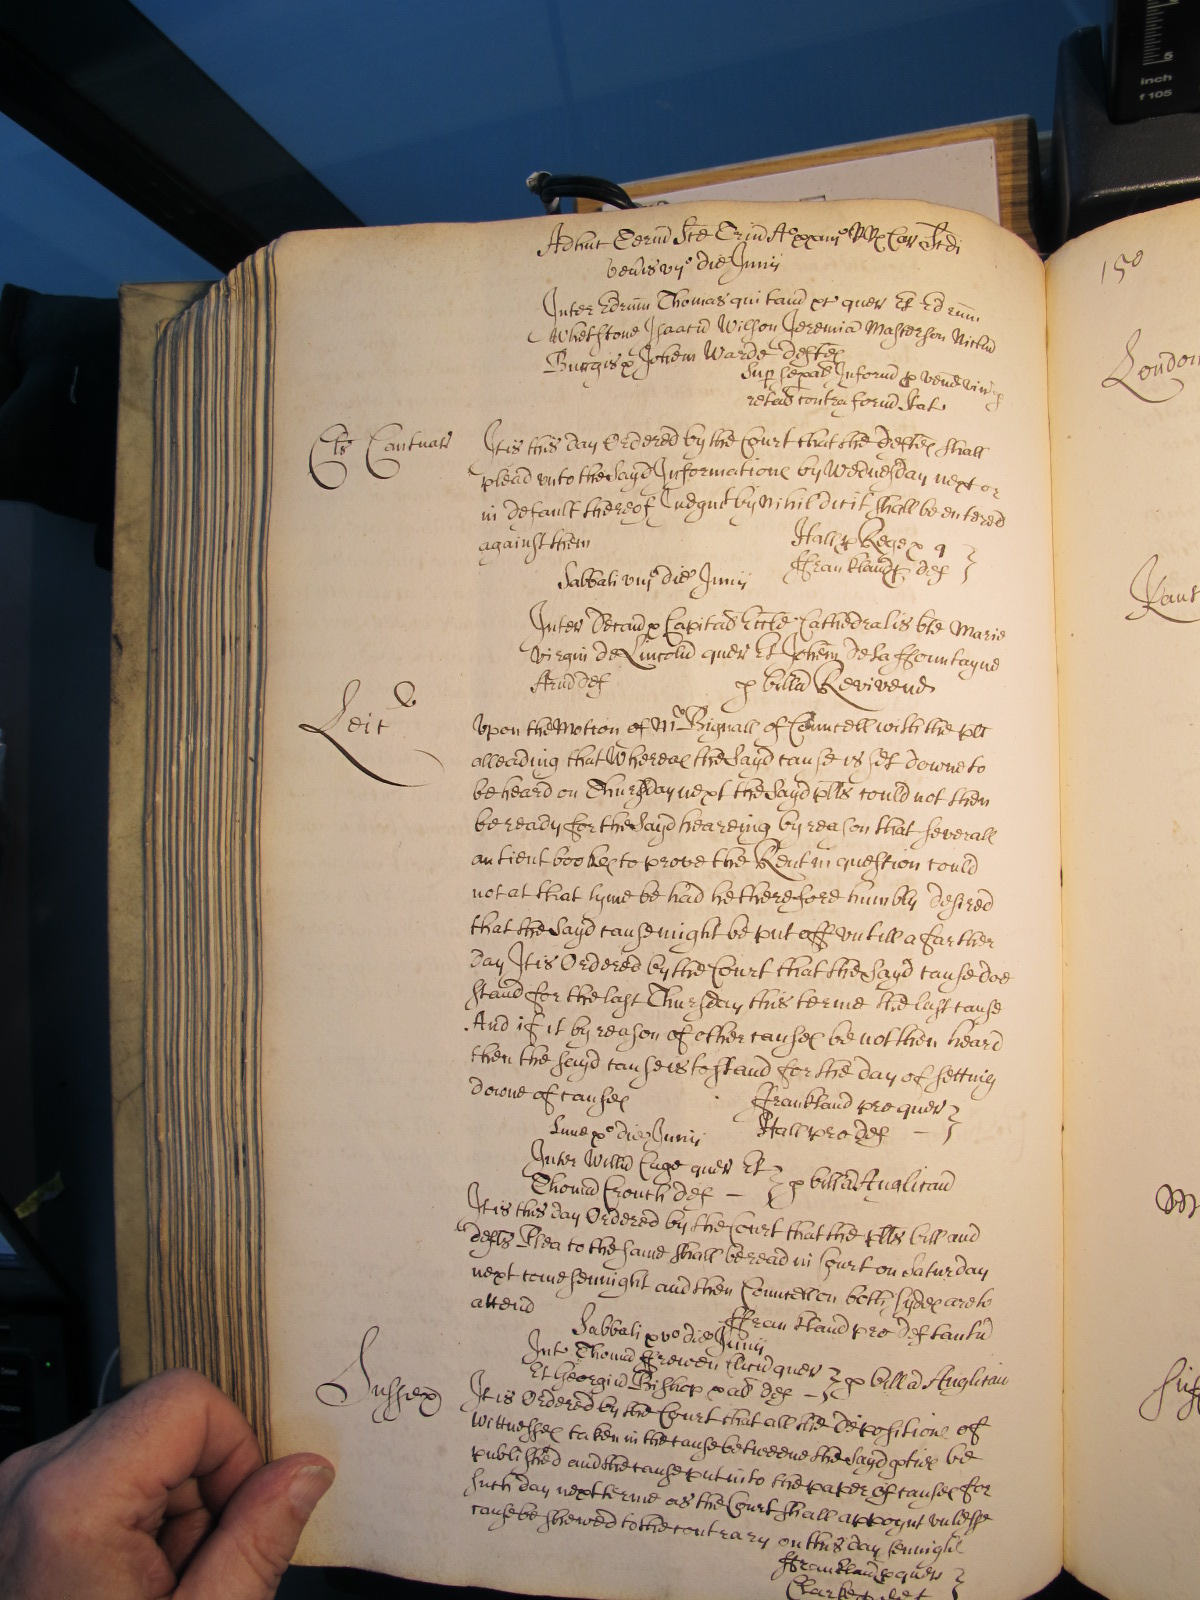 Adhuc Termi Sce Trin A° xxxiiij° RRx Car Scdi
Venis vij° die Junij
Inter Edrum Thomas qui tam &c quer Et Edrum
Whetstone Isaacu Wilson Jeremia Masterson Nichu
Burgis & Johem Warde deftes
Sup sepal Inform p vend vin p
retail contra form Stat
Cts Cantuar
It is this day Ordered by the Court that the deftes shall
plead vnto the Sayd Informatione by Wednesday next or
in default thereof Judgmt by Nihil dicit shall be entered
against them
Hall p Rege & q
ffrankland p def
Sabbati viij° die Junij
Inter Decan & Capital Eccle Cathedralis bte Marie
Virgin de Lincoln quer Et Johem De la ffountayne
Ar def
p billa Revivend
Leic
Vpon the Motion of Mr Bignall of Councell with the plt
alleading that Whereas the Sayd cause is set downe to
be heard on Thursday next the Sayd plts could not then
be ready for the Sayd heareing by reason that severall
antient bookes to prove the Rent in question could
not at that tyme be had he therefore humbly desired
that the Sayd cause might be put off vntill a farther
day It is Ordered by the Court that the Sayd cause doe
stand for the last Thursday this terme the last cause
And if it by reason of other causes be not then heard
then the Sayd cause is to stand for the day of setting
downe of causes
ffrankland pro quer
Hall pro def
Lune x° die Junij
Inter Willm Cage quer Et
Thomam Crouch def
p billa Anglican
It is this day Ordered by the Court that the plts bill and
defts Plea to the same shall be read in Court on Saturday
next come sennight and then Councell on both sydes are to
attend
ffrankland pro def tantu
Sabbati xv° die Junij
Int Thomam ffrewen Clicu quer
Et Georgiu Bishop & al def
p billa Anglican
Sussex
It is Ordered by the Court that all the depositions of
Wittnesses taken in the cause betweene the Sayd pties be
published and the cause put into the paper of causes for
such day next terme as the Court shall appoynt vnlesse
cause be shewed to the contrary on this day sennight
ffrankland p quer
Clarke p def
150
London
Kant
inch
f 105
5